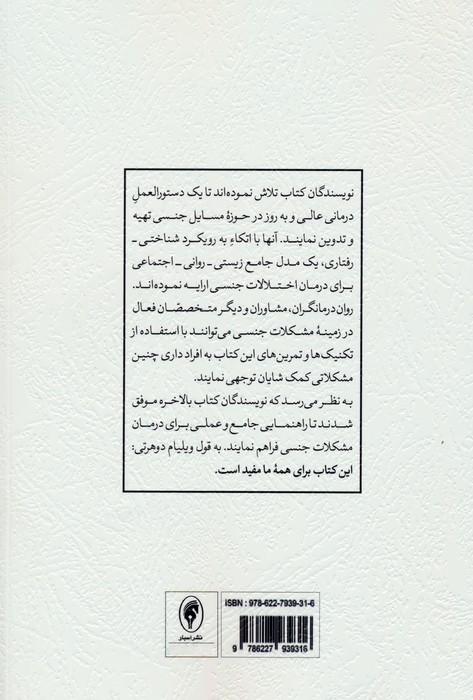 نویسندگان کتاب تلاش نموده‌اند تا یک دستورالعملِ
درمانی عالی و به روز در حوزهٔ مسایل جنسی تهیه
و تدوین نمایند. آنها با اتکاءِ به رویکرد شناختی ـ
رفتاری، یک مدل جامع زیستی ـ روانی ـ اجتماعی
برای درمان اختلالات جنسی ارایه نموده‌اند.
روان‌درمانگران، مشاوران و دیگر متخصصّان فعال
در زمینهٔ مشکلات جنسی می‌توانند با استفاده از
تکنیک‌ها و تمرین‌های این کتاب به افراد داری چنین
مشکلاتی کمک شایان توجهی نمایند.
به نظر می‌رسد که نویسندگان کتاب بالاخره موفق
شدند تا راهنمایی جامع و عملی برای درمان
مشکلات جنسی فراهم نمایند. به قول ویلیام دوهرتی:
این کتاب برای همهٔ ما مفید است.
نشر اسبار
ISBN : 978-622-7939-31-6
9 786227 939316